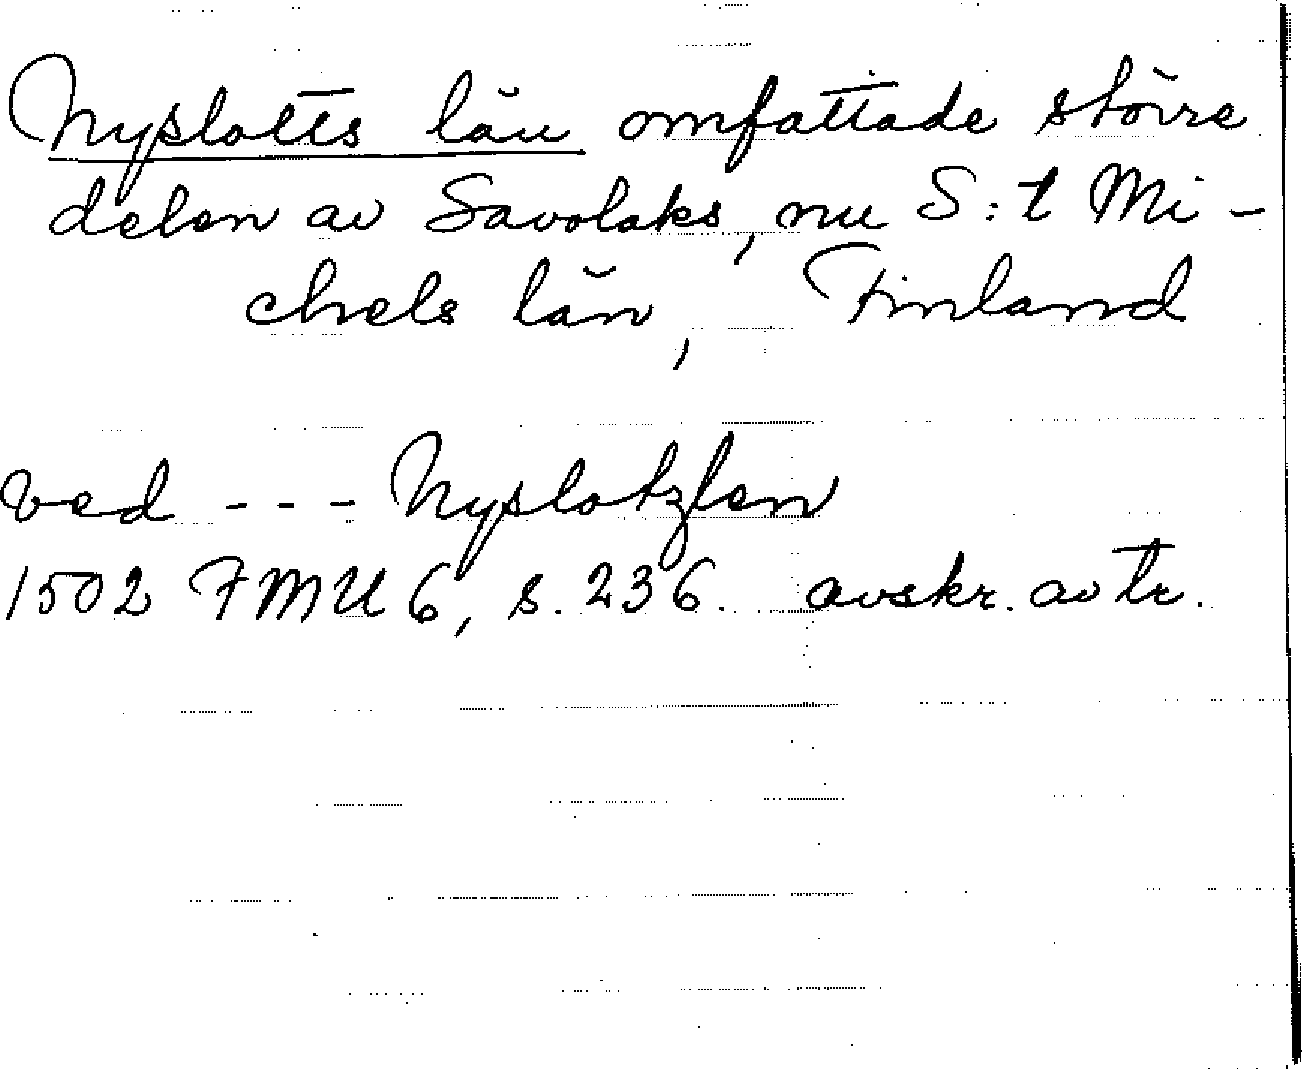 Nyslotts län omfattade större
delen av Savolaks, nu S:t Mi-
chels län, Finland
ved - - - Nyslotzlen
1502 FMU 6, s. 236. avskr. av tr.